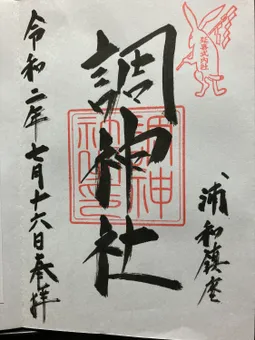 延喜式内社
浦和鎮座
調神社
調神社印
令和二年七月十六日参拝